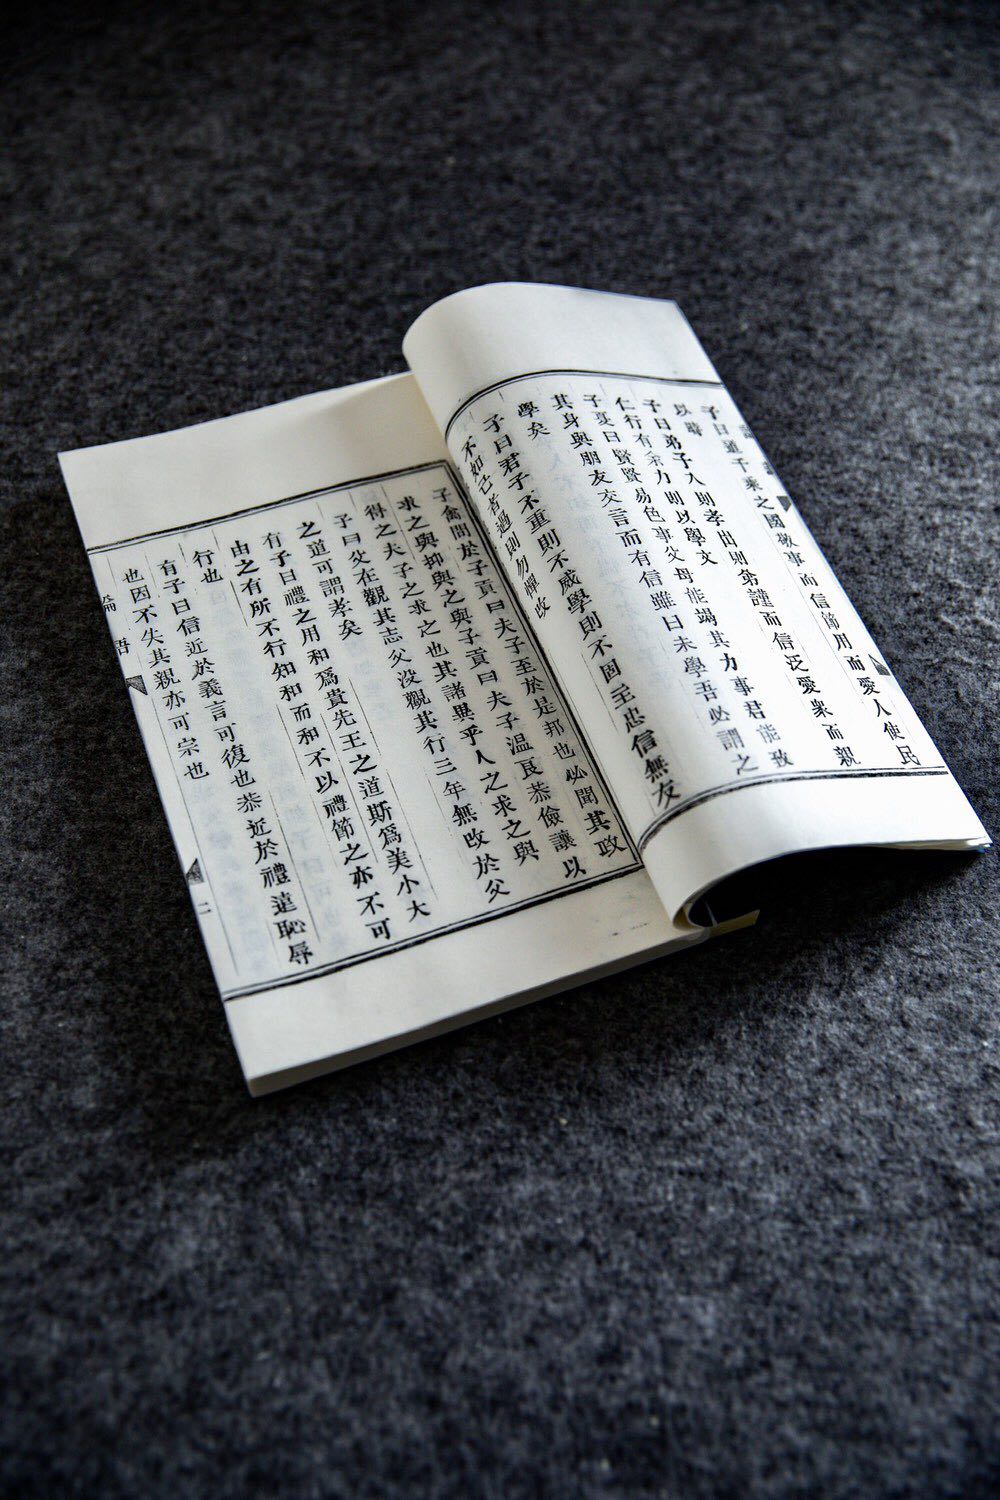 子曰道千乘之國敬事而信節用而愛人使民
以時
子曰弟子入則孝出則弟謹而信泛愛衆而親
仁行有餘力則以學文
子夏曰賢賢易色事父母能竭其力事君能致
其身與朋友交言而有信雖曰未學吾必謂之
學矣
子曰君子不重則不威學則不固主忠信無友
不如己者過則勿憚改
子禽問於子貢曰夫子至於是邦也必聞其政
求之與抑與之與子貢曰夫子溫良恭儉讓以
得之夫子之求之也其諸異乎人之求之與
子曰父在觀其志父沒觀其行三年無改於父
之道可謂孝矣
有子曰禮之用和爲貴先王之道斯爲美小大
由之有所不行知和而和不以禮節之亦不可
行也
有子曰信近於義言可復也恭近於禮遠恥辱
也因不失其親亦可宗也
論語
二